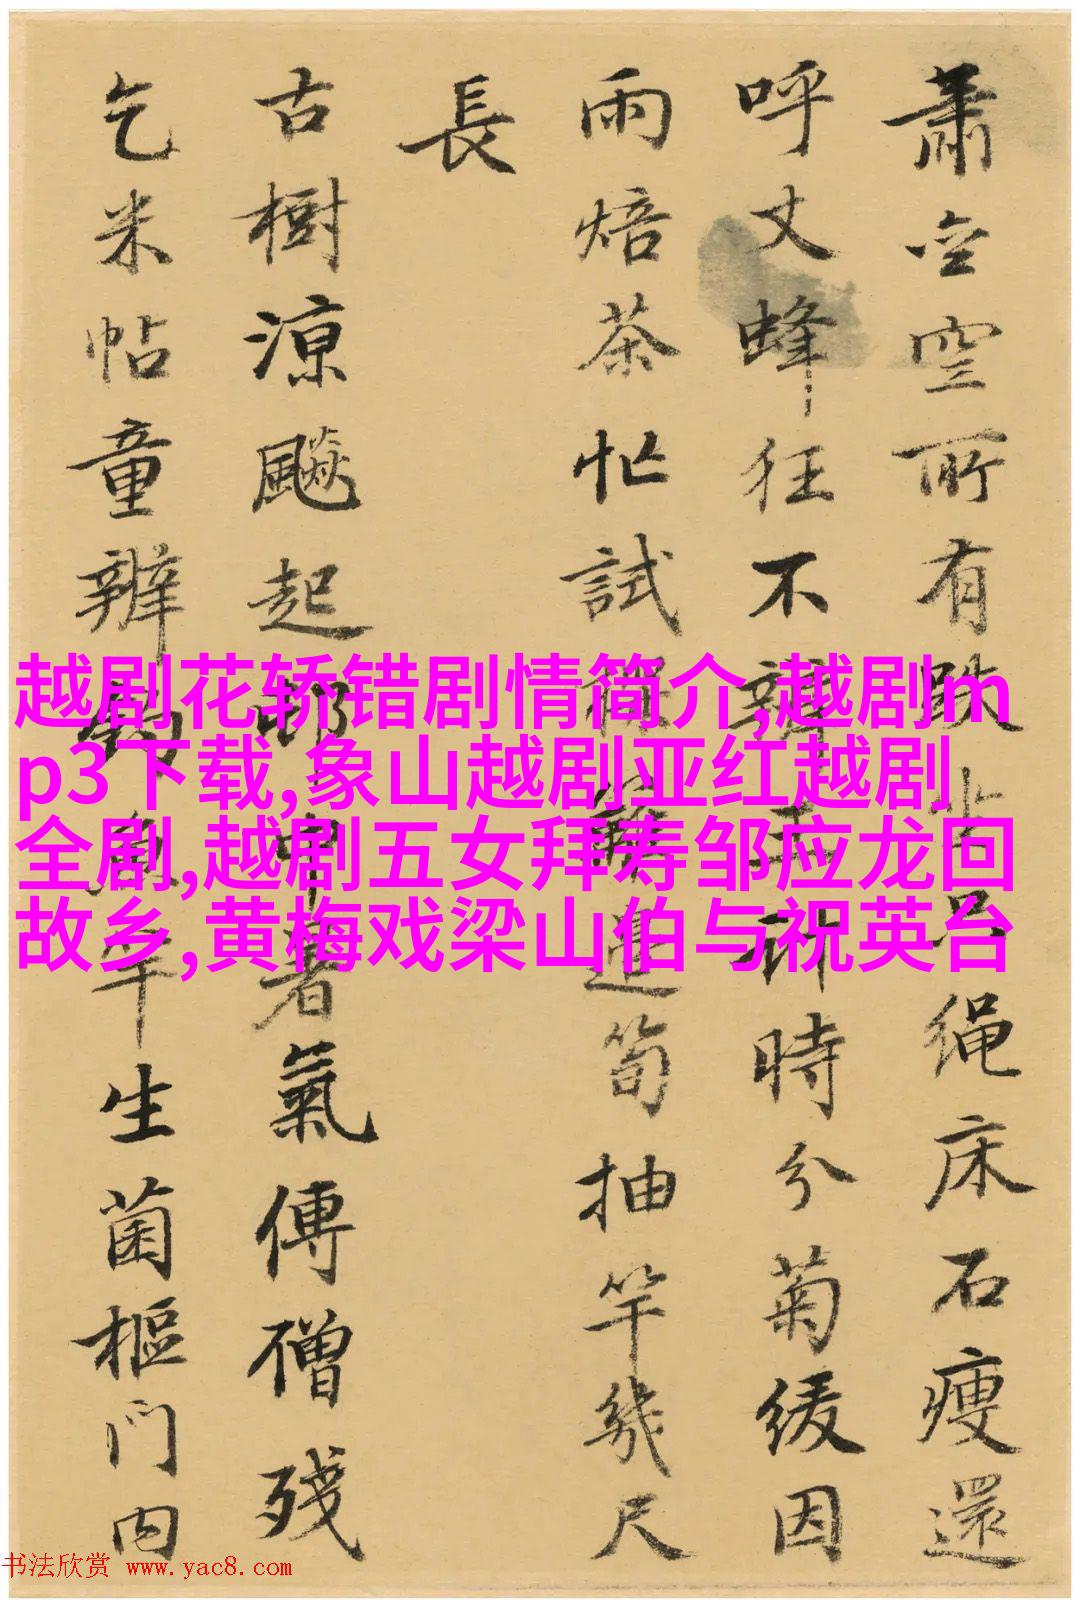 空所有趺坐只繩床石瘦還
呼丈蜂狂不王時分菊緩因
雨焙茶忙試籬邊筍抽竿幾尺
長
古樹涼飈起邨中暑氣傳僧殘
乞米帖童辨釣魚竿生菌樞門内
越剧花轿错剧情简介,越剧m
p3下载,象山越剧亚红越剧
全剧,越剧五女拜寿邹应龙回
故乡,黄梅戏梁山伯与祝英台
书法欣赏 www.yac8.com